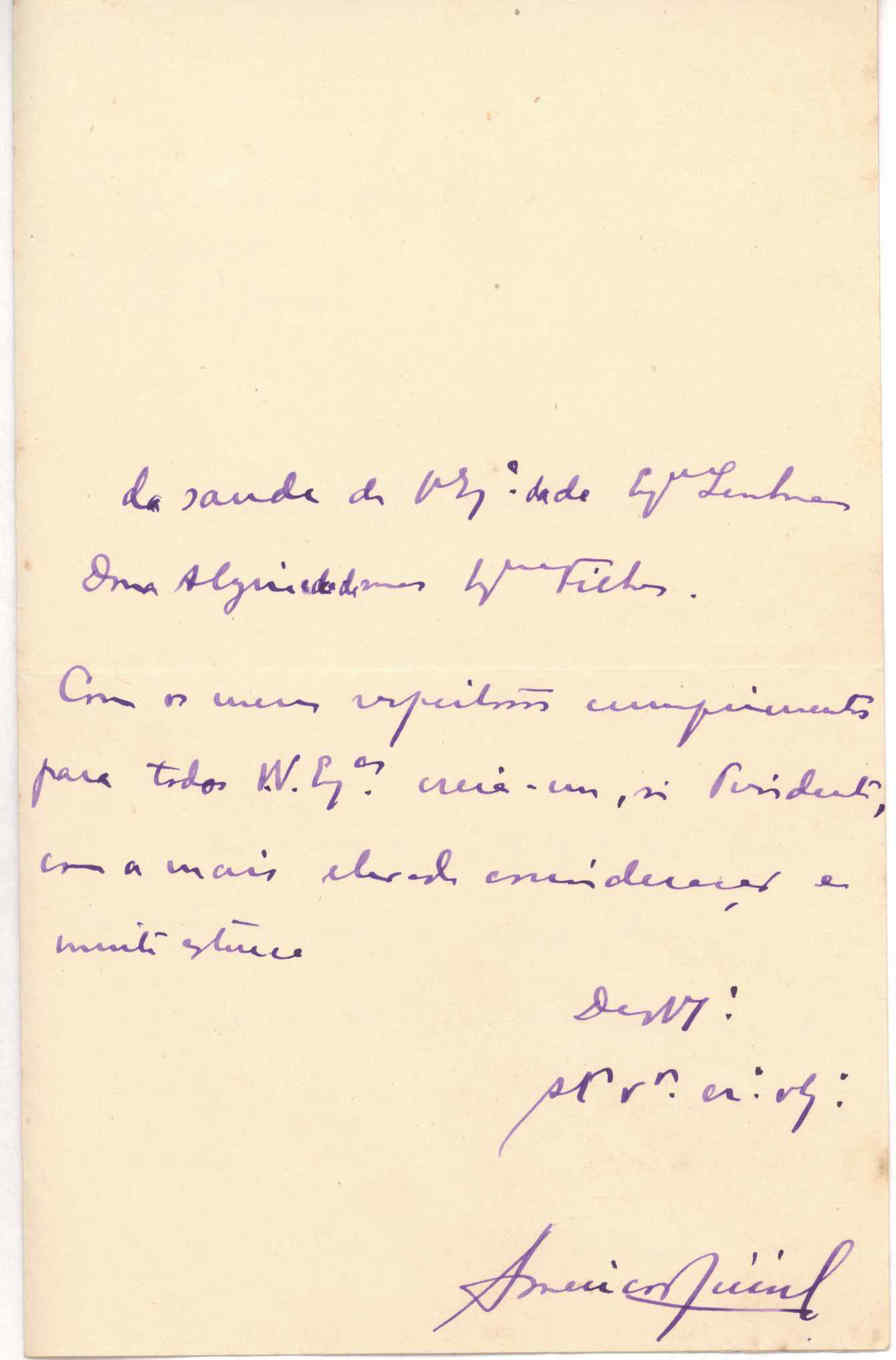 da saude de V. Ex.ª da de Ex.ma Senhora
Dona Alzira e da de suas Ex.mas Filhas.
Com os meus respeitosos cumprimentos
para todos V.V. Ex.as creia-me, sr. Presidente,
com a mais elevada consideração e
muita estima
De V. Ex.ª
cr.º obg.º
Americo